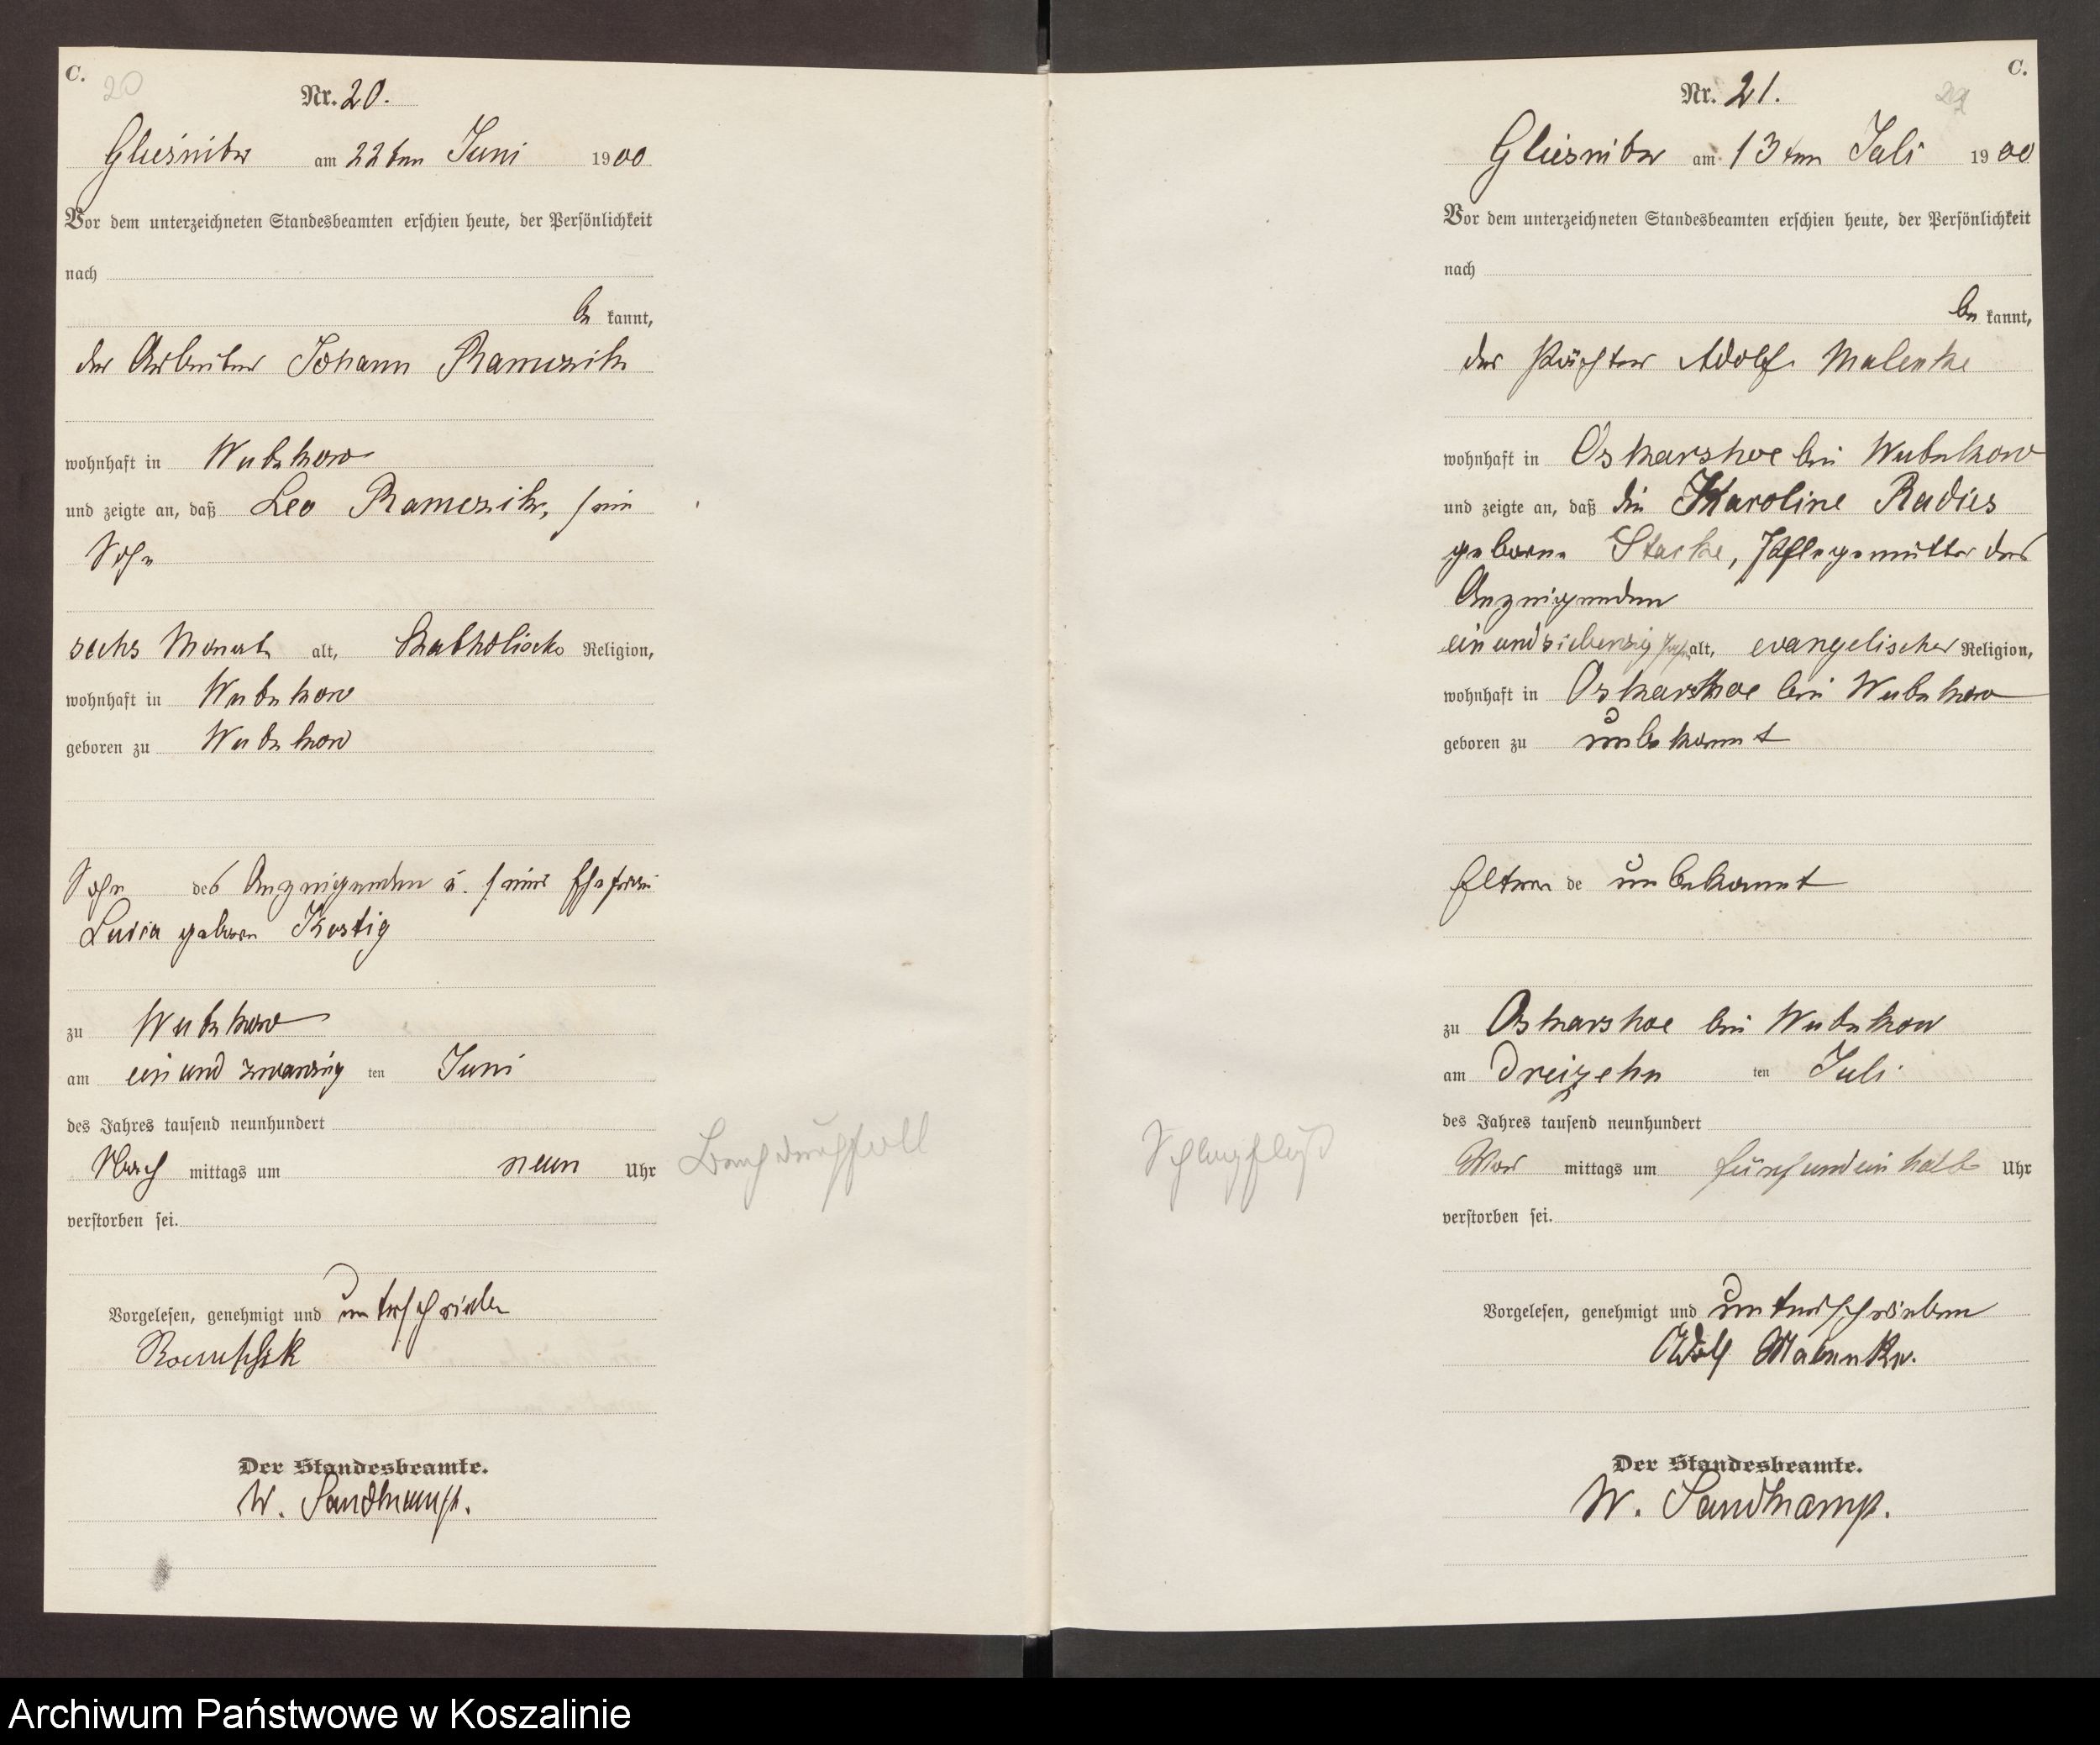 C.
20
Nr. 20.
Gliesnitz am 22ten Juni 1900
Vor dem unterzeichneten Standesbeamten erschien heute, der Persönlichkeit
nach
be kannt,
der Arbeiter Johann
wohnhaft in Wutzkow
und zeigte an, daß Leo sein
Sohn
sechs Monate alt, katholischer Religion,
wohnhaft in Wutzkow
geboren zu Wutzkow
Sohn des Anzeigenden u. seiner Ehefrau
geboren
zu Wutzkow
am ein und zwanzig ten Juni
des Jahres tausend neunhundert
Nach mittags um neun Uhr
Brechdurchfall
verstorben sei.
Vorgelesen, genehmigt und unterschrieben
Der Standesbeamte.
W. Sandkamp.
C.
Nr. 21.
Gliesnitz am 13ten Juli 1900
Vor dem unterzeichneten Standesbeamten erschien heute, der Persönlichkeit
nach
be kannt,
der Pächter Adolf Malenke
wohnhaft in Oskarshoe bei Wutzkow
und zeigte an, daß die Karoline Radies
geborene Starke, Pflegemutter des
Anzeigenden
ein und siebenzig Jahre alt, evangelischer Religion,
wohnhaft in Oskarshoe bei Wutzkow
geboren zu unbekannt
Eltern de unbekannt
zu Oskarshoe bei Wutzkow
am dreizehn ten Juli
des Jahres tausend neunhundert
Vor mittags um fünf und ein halb Uhr
Schlagfluß
verstorben sei.
Vorgelesen, genehmigt und unterschrieben
Adolf Malenke.
Der Standesbeamte.
W. Sandkamp.
Archiwum Państwowe w Koszalinie